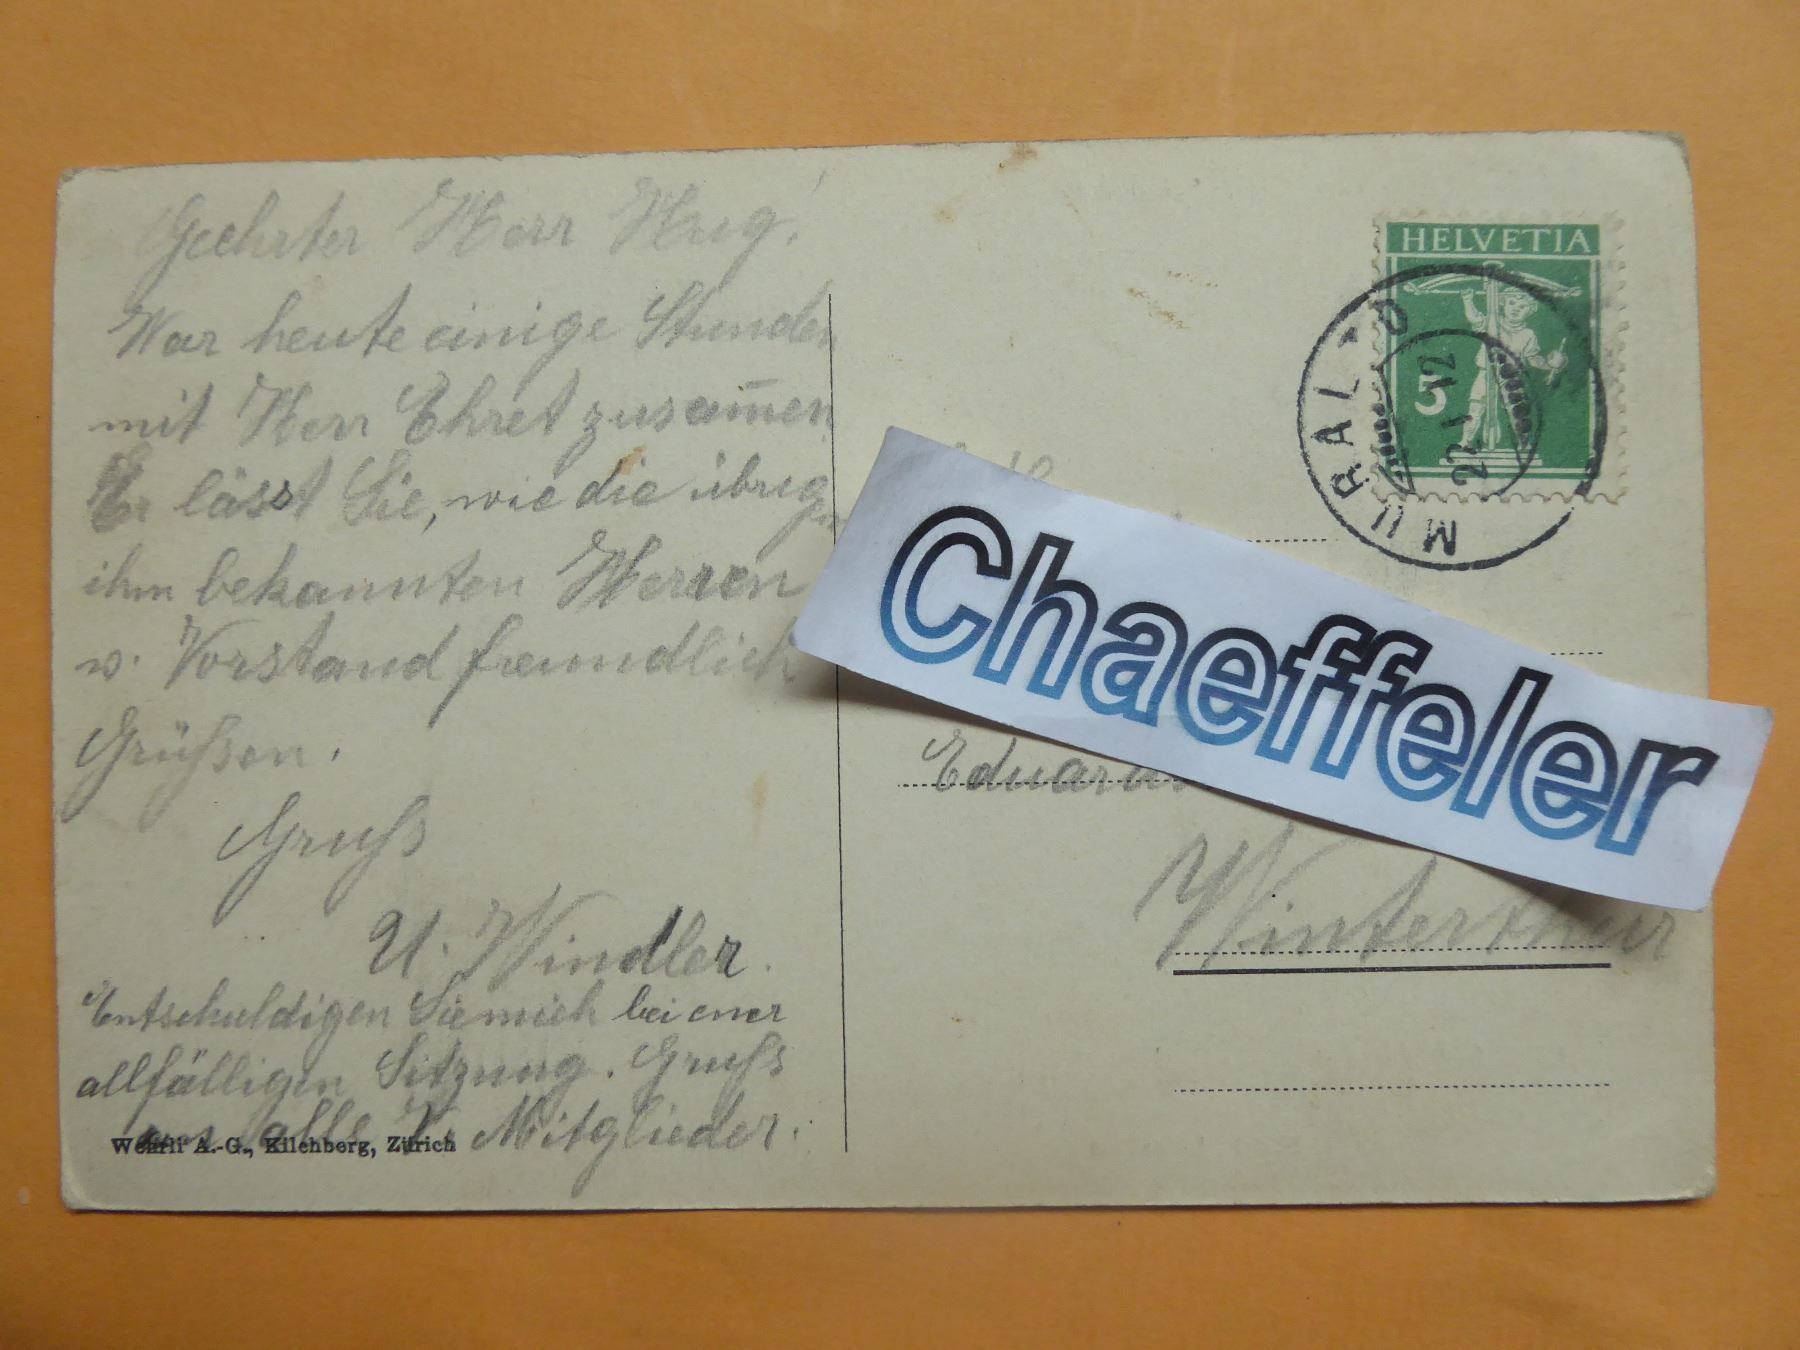 Geehrter Herr Hug!
War heute einige Stunden
mit Herr Ehret zusam̄en
Er lässt Sie, wie die übrigen
ihm bekannten Herren
v. Vorstand freundlich
Grüßen.
Gruß
U. Windler.
Entschuldigen Sie mich bei ener
allfälligen Sitzung. Gruß
an alle V. Mitglieder.
Wehrli A.-G., Kilchberg, Zürich
HELVETIA
5
MURALTO
22.I.12
Chaeffeler
Eduard
Winterthur